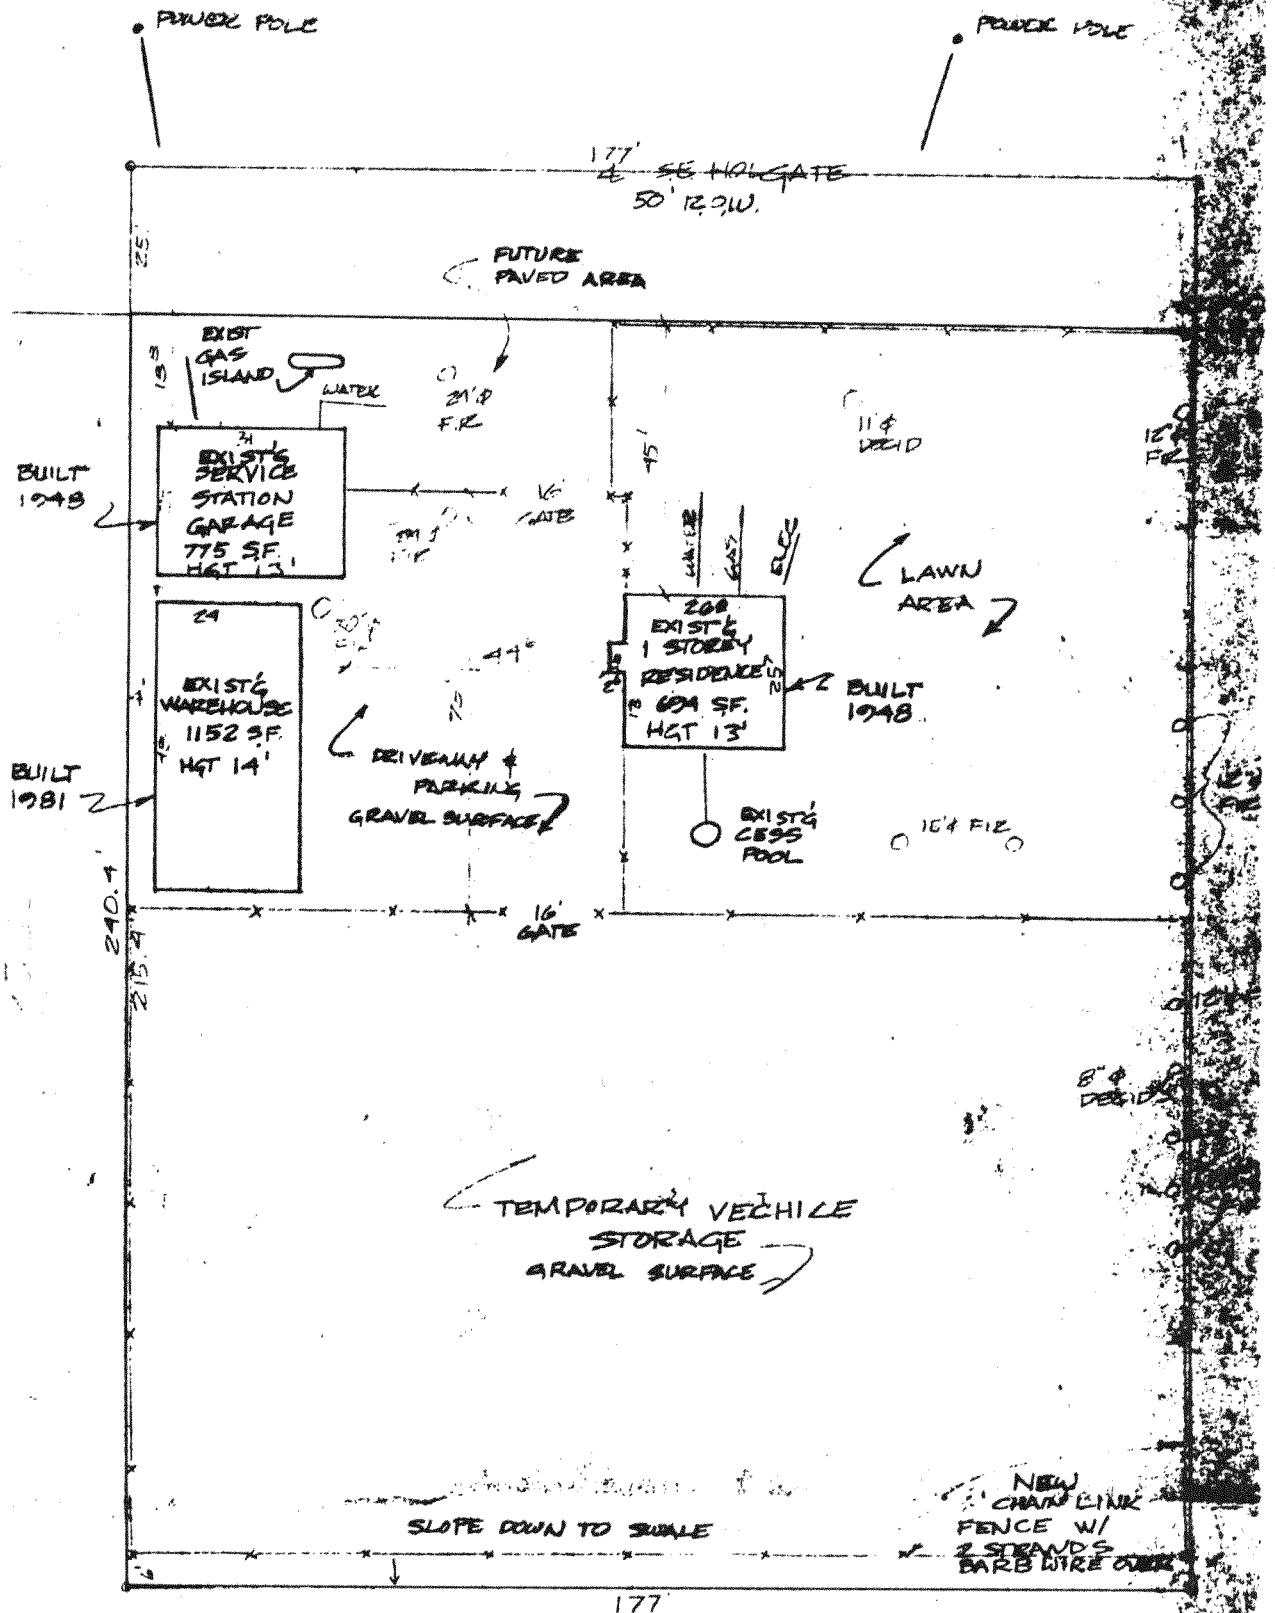 POWER POLE
POWER POLE
177'
℄ SE HOLGATE
50' R.O.W.
25'
FUTURE
PAVED AREA
EXIST
GAS
ISLAND
WATER
F.R
11"φ
DECID
45'
BUILT
1948
EXIST'G
SERVICE
STATION
GARAGE
775 SF.
HGT 13'
16'
GATE
WATER
GAS
ELEC
LAWN
AREA
24
EXIST'G
WAREHOUSE
1152 SF.
HGT 14'
BUILT
1981
44⁶
EXIST'G
1 STOREY
RESIDENCE
694 SF.
HGT 13'
BUILT
1948
DRIVEWAY &
PARKING
GRAVEL SURFACE
EXIST'G
CESS
POOL
FIR
240.4'
215.4'
16'
GATE
8"φ
DECID
TEMPORARY VECHILE
STORAGE
GRAVEL SURFACE
SLOPE DOWN TO SWALE
NEW
CHAIN LINK
FENCE W/
2 STRANDS
BARB WIRE OVER
6'
177